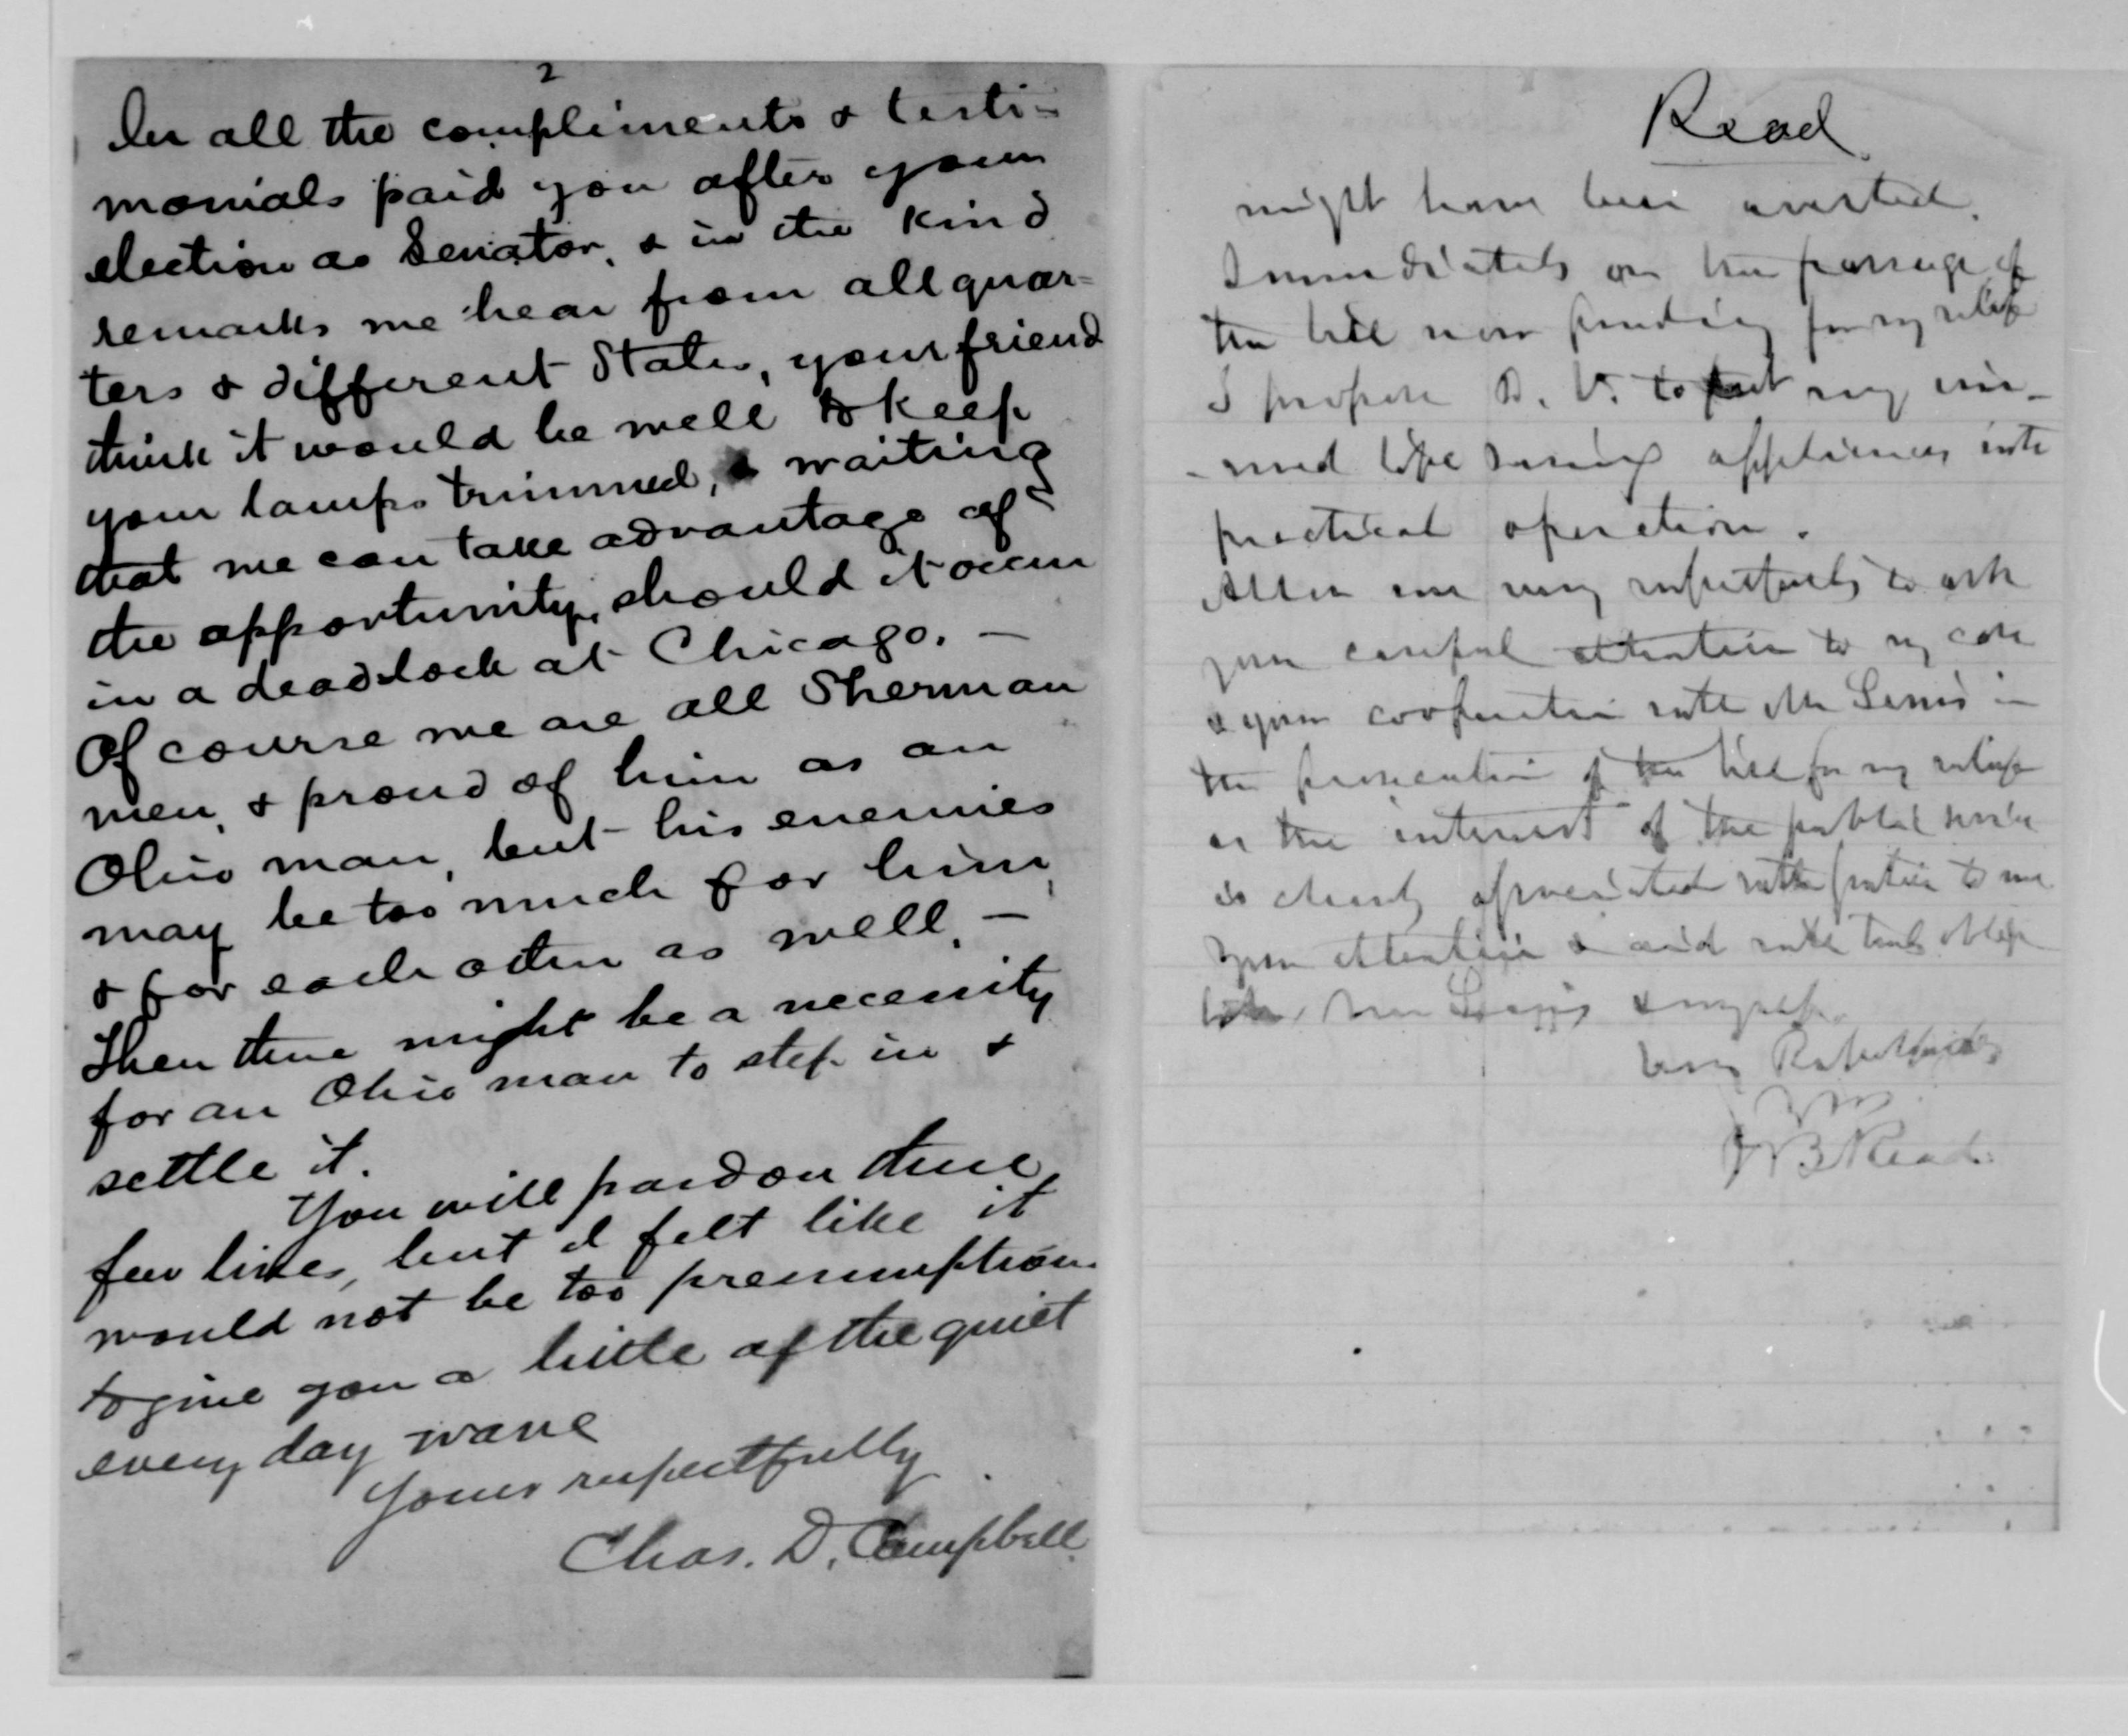 2
In all the compliments & testi=
monials paid you after your
election as Senator, & in the kind
remarks we hear from all quar=
ters & different States, your friend
think it would be well to keep
your lamps trimmed, & waiting
that we can take advantage of
the opportunity, should it occur
in a deadlock at Chicago. —
Of course we are all Sherman
men, & proud of him as an
Ohio man, but his enemies
may be too much for him,
& for each other as well, —
Then there might be a necessity
for an Ohio man to step in &
settle it.
You will pardon these
few lines, but I felt like it
would not be too presumption
to give you a little of the quiet
every day wave
Yours respectfully
Chas. D. Campbell
Read
might have been averted.
Immediately on the passage of
the bill now pending for my relief
I propose D. V. to put my im-
-proved life saving appliances into
practical operation.
Allow me very respectfully to ask
your careful attention to my case
& your cooperation with Mr in
the prosecution of the bill for my relief
as the interest of the public service
is closely associated with justice to me
Your attention & aid will truly oblige
both & myself.
Very Respectfully
J B Read